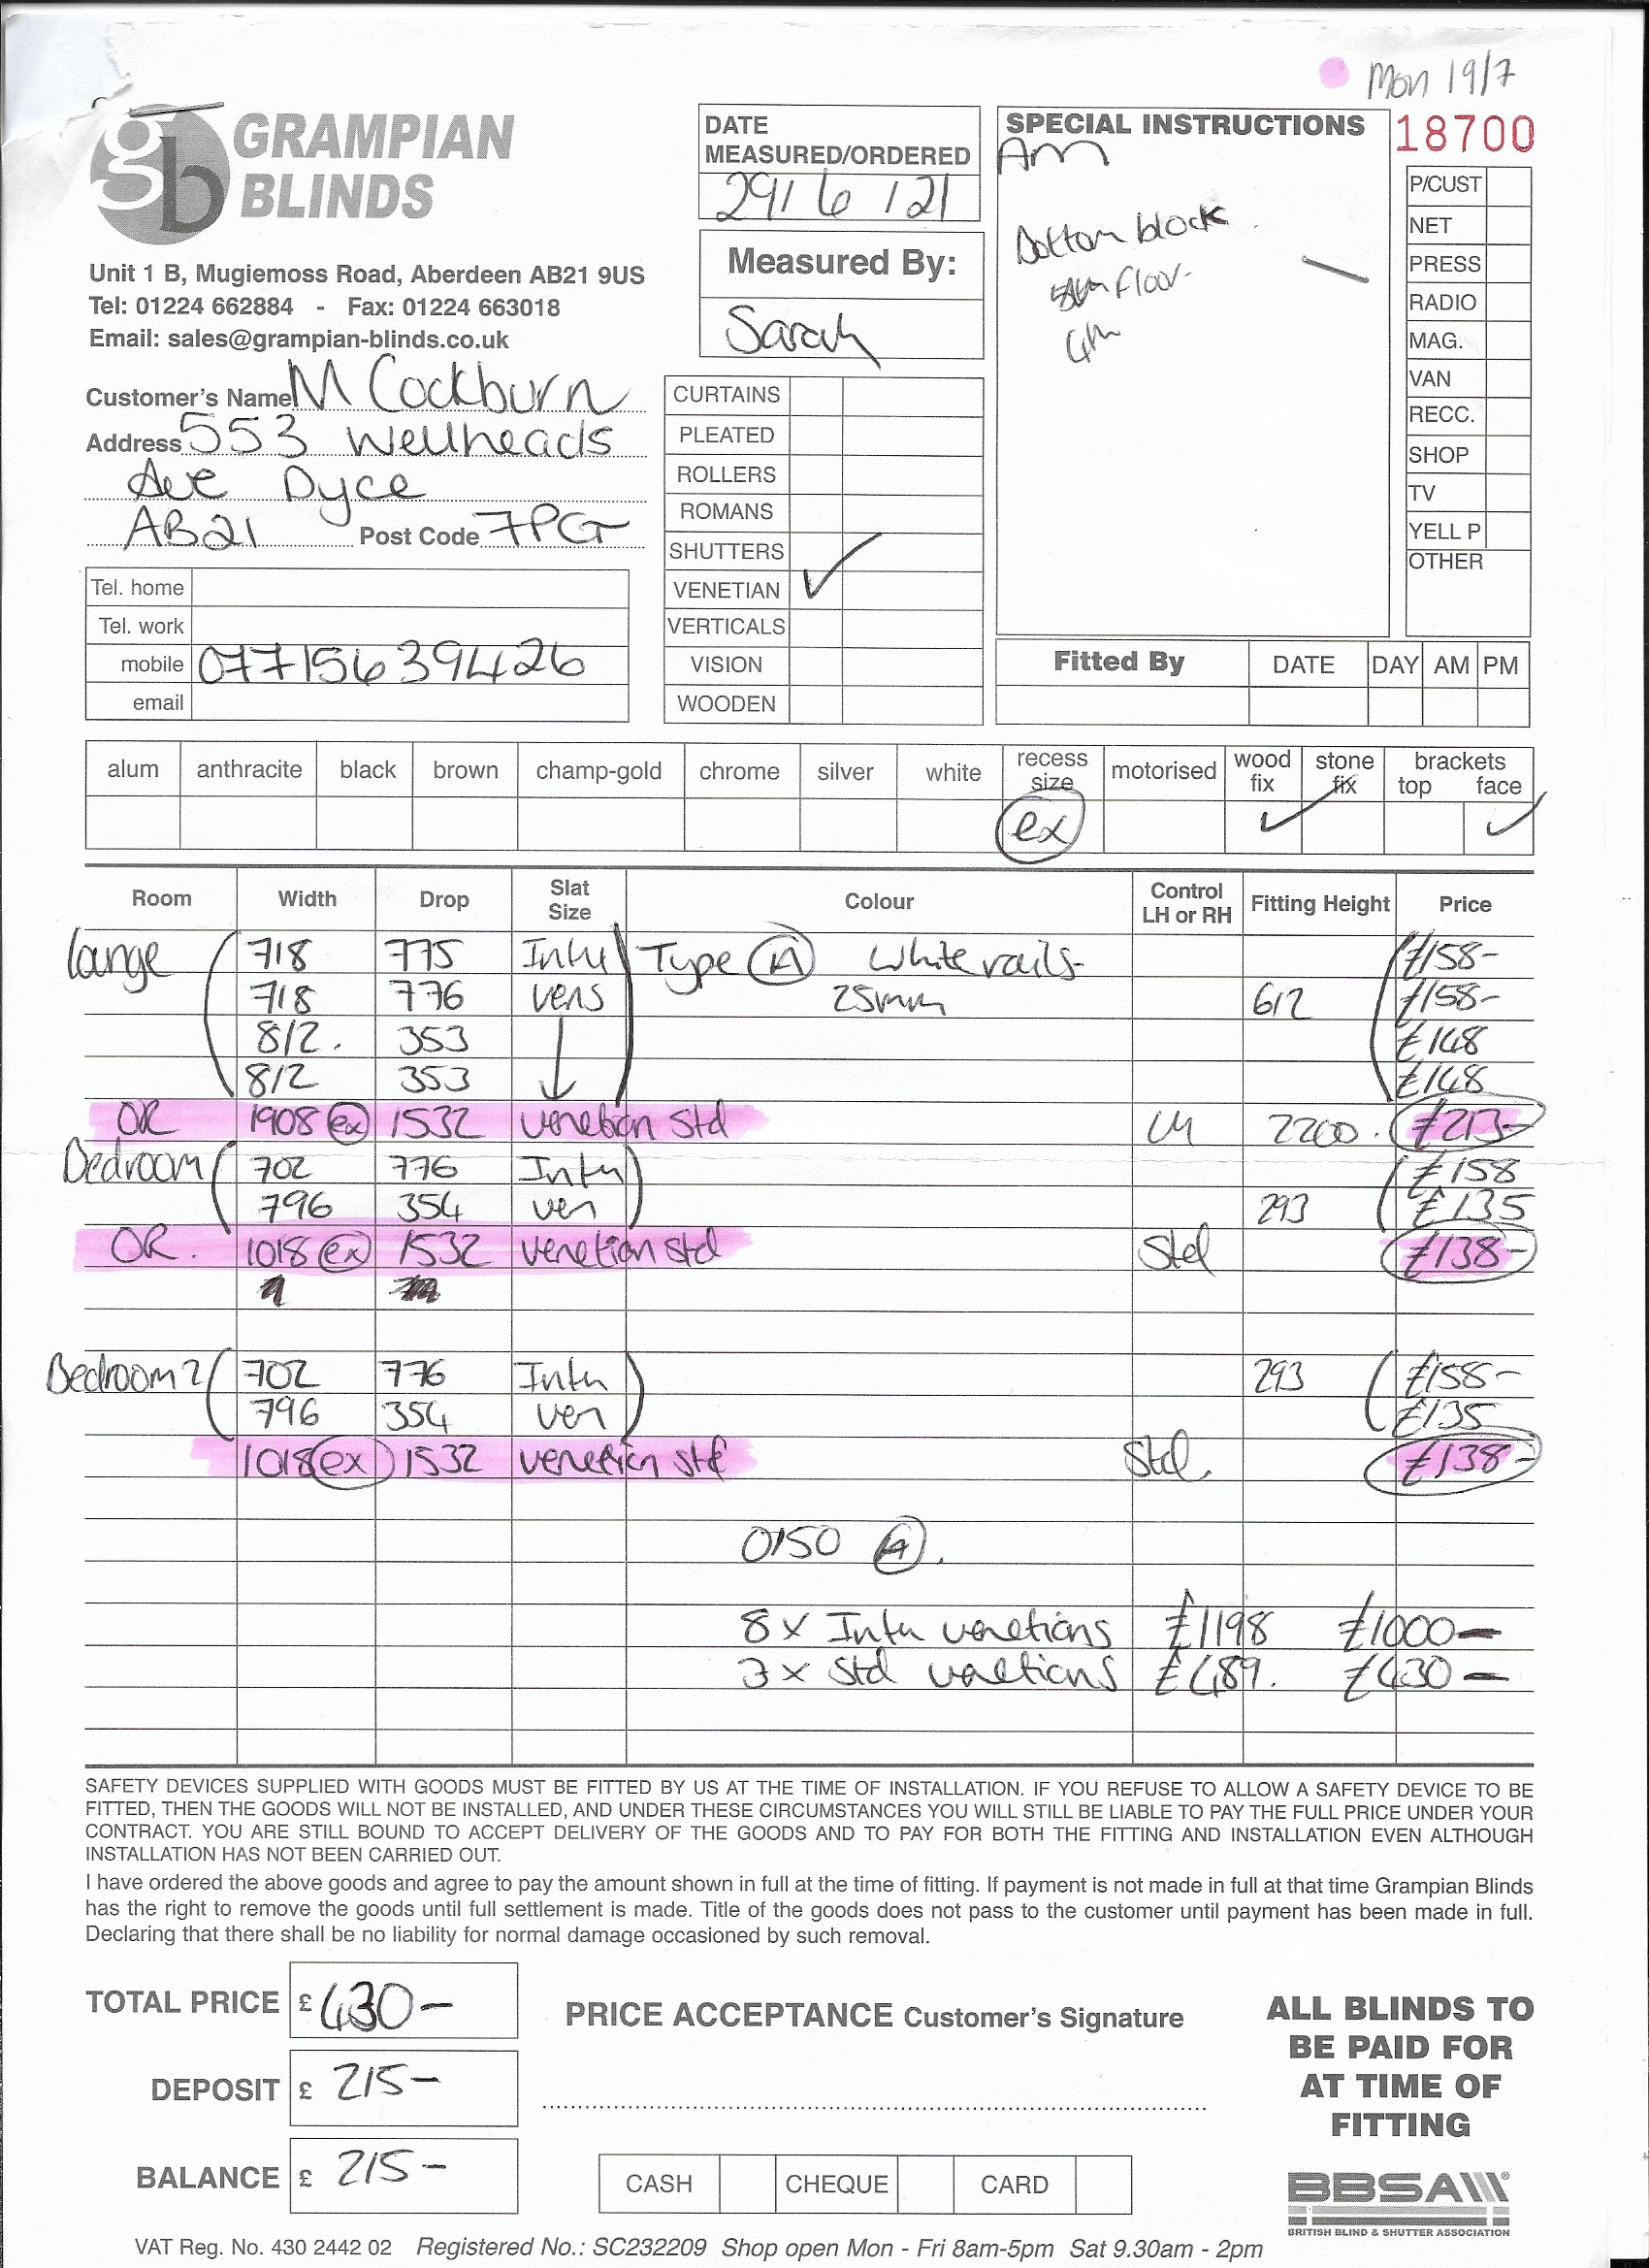 Mon 19/7
GRAMPIAN
BLINDS
gb
Unit 1 B, Mugiemoss Road, Aberdeen AB21 9US
Tel: 01224 662884 - Fax: 01224 663018
Email: sales@grampian-blinds.co.uk
Customer's Name M Cockburn
Address 553 Wellheads
Ave Dyce
AB21 Post Code 7PG
Tel. home
Tel. work
mobile 07715639426
email
DATE
MEASURED/ORDERED
29/6/21
Measured By:
Sarah
CURTAINS
PLEATED
ROLLERS
ROMANS
SHUTTERS
VENETIAN ✓
VERTICALS
VISION
WOODEN
SPECIAL INSTRUCTIONS
Am
Bottom block
floor
18700
P/CUST
NET
PRESS
RADIO
MAG.
VAN
RECC.
SHOP
TV
YELL P
OTHER
Fitted By DATE DAY AM PM
alum anthracite black brown champ-gold chrome silver white recess size motorised wood fix stone fix brackets top face
ex ✓ ✓
Room Width Drop Slat Size Colour Control LH or RH Fitting Height Price
Lounge 718 775 Intu Type A White rails £158-
718 776 vens 25mm 612 £158-
812. 353 £148
812 353 £148
OR 1908 ex 1532 venetian Std LH 2200. £213-
Bedroom 702 776 Intu £158
796 354 ven 293 £135
OR. 1018 ex 1532 venetian std Std £138-
Bedroom 2 702 776 Intu 293 £158-
796 354 ven £135
1018 ex 1532 venetian std Std. £138-
0150 A.
8 x Intu venetians £1198 £1000-
3 x Std venetians £489. £430-
SAFETY DEVICES SUPPLIED WITH GOODS MUST BE FITTED BY US AT THE TIME OF INSTALLATION. IF YOU REFUSE TO ALLOW A SAFETY DEVICE TO BE
FITTED, THEN THE GOODS WILL NOT BE INSTALLED, AND UNDER THESE CIRCUMSTANCES YOU WILL STILL BE LIABLE TO PAY THE FULL PRICE UNDER YOUR
CONTRACT. YOU ARE STILL BOUND TO ACCEPT DELIVERY OF THE GOODS AND TO PAY FOR BOTH THE FITTING AND INSTALLATION EVEN ALTHOUGH
INSTALLATION HAS NOT BEEN CARRIED OUT.
I have ordered the above goods and agree to pay the amount shown in full at the time of fitting. If payment is not made in full at that time Grampian Blinds
has the right to remove the goods until full settlement is made. Title of the goods does not pass to the customer until payment has been made in full.
Declaring that there shall be no liability for normal damage occasioned by such removal.
TOTAL PRICE £ 430-
DEPOSIT £ 215-
BALANCE £ 215-
PRICE ACCEPTANCE Customer's Signature
CASH CHEQUE CARD
ALL BLINDS TO
BE PAID FOR
AT TIME OF
FITTING
BBSA®
BRITISH BLIND & SHUTTER ASSOCIATION
VAT Reg. No. 430 2442 02 Registered No.: SC232209 Shop open Mon - Fri 8am-5pm Sat 9.30am - 2pm